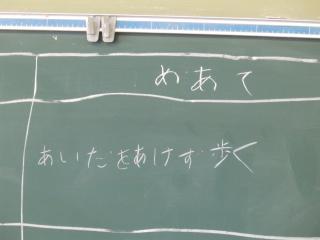 めあて
あいだをあけず歩く